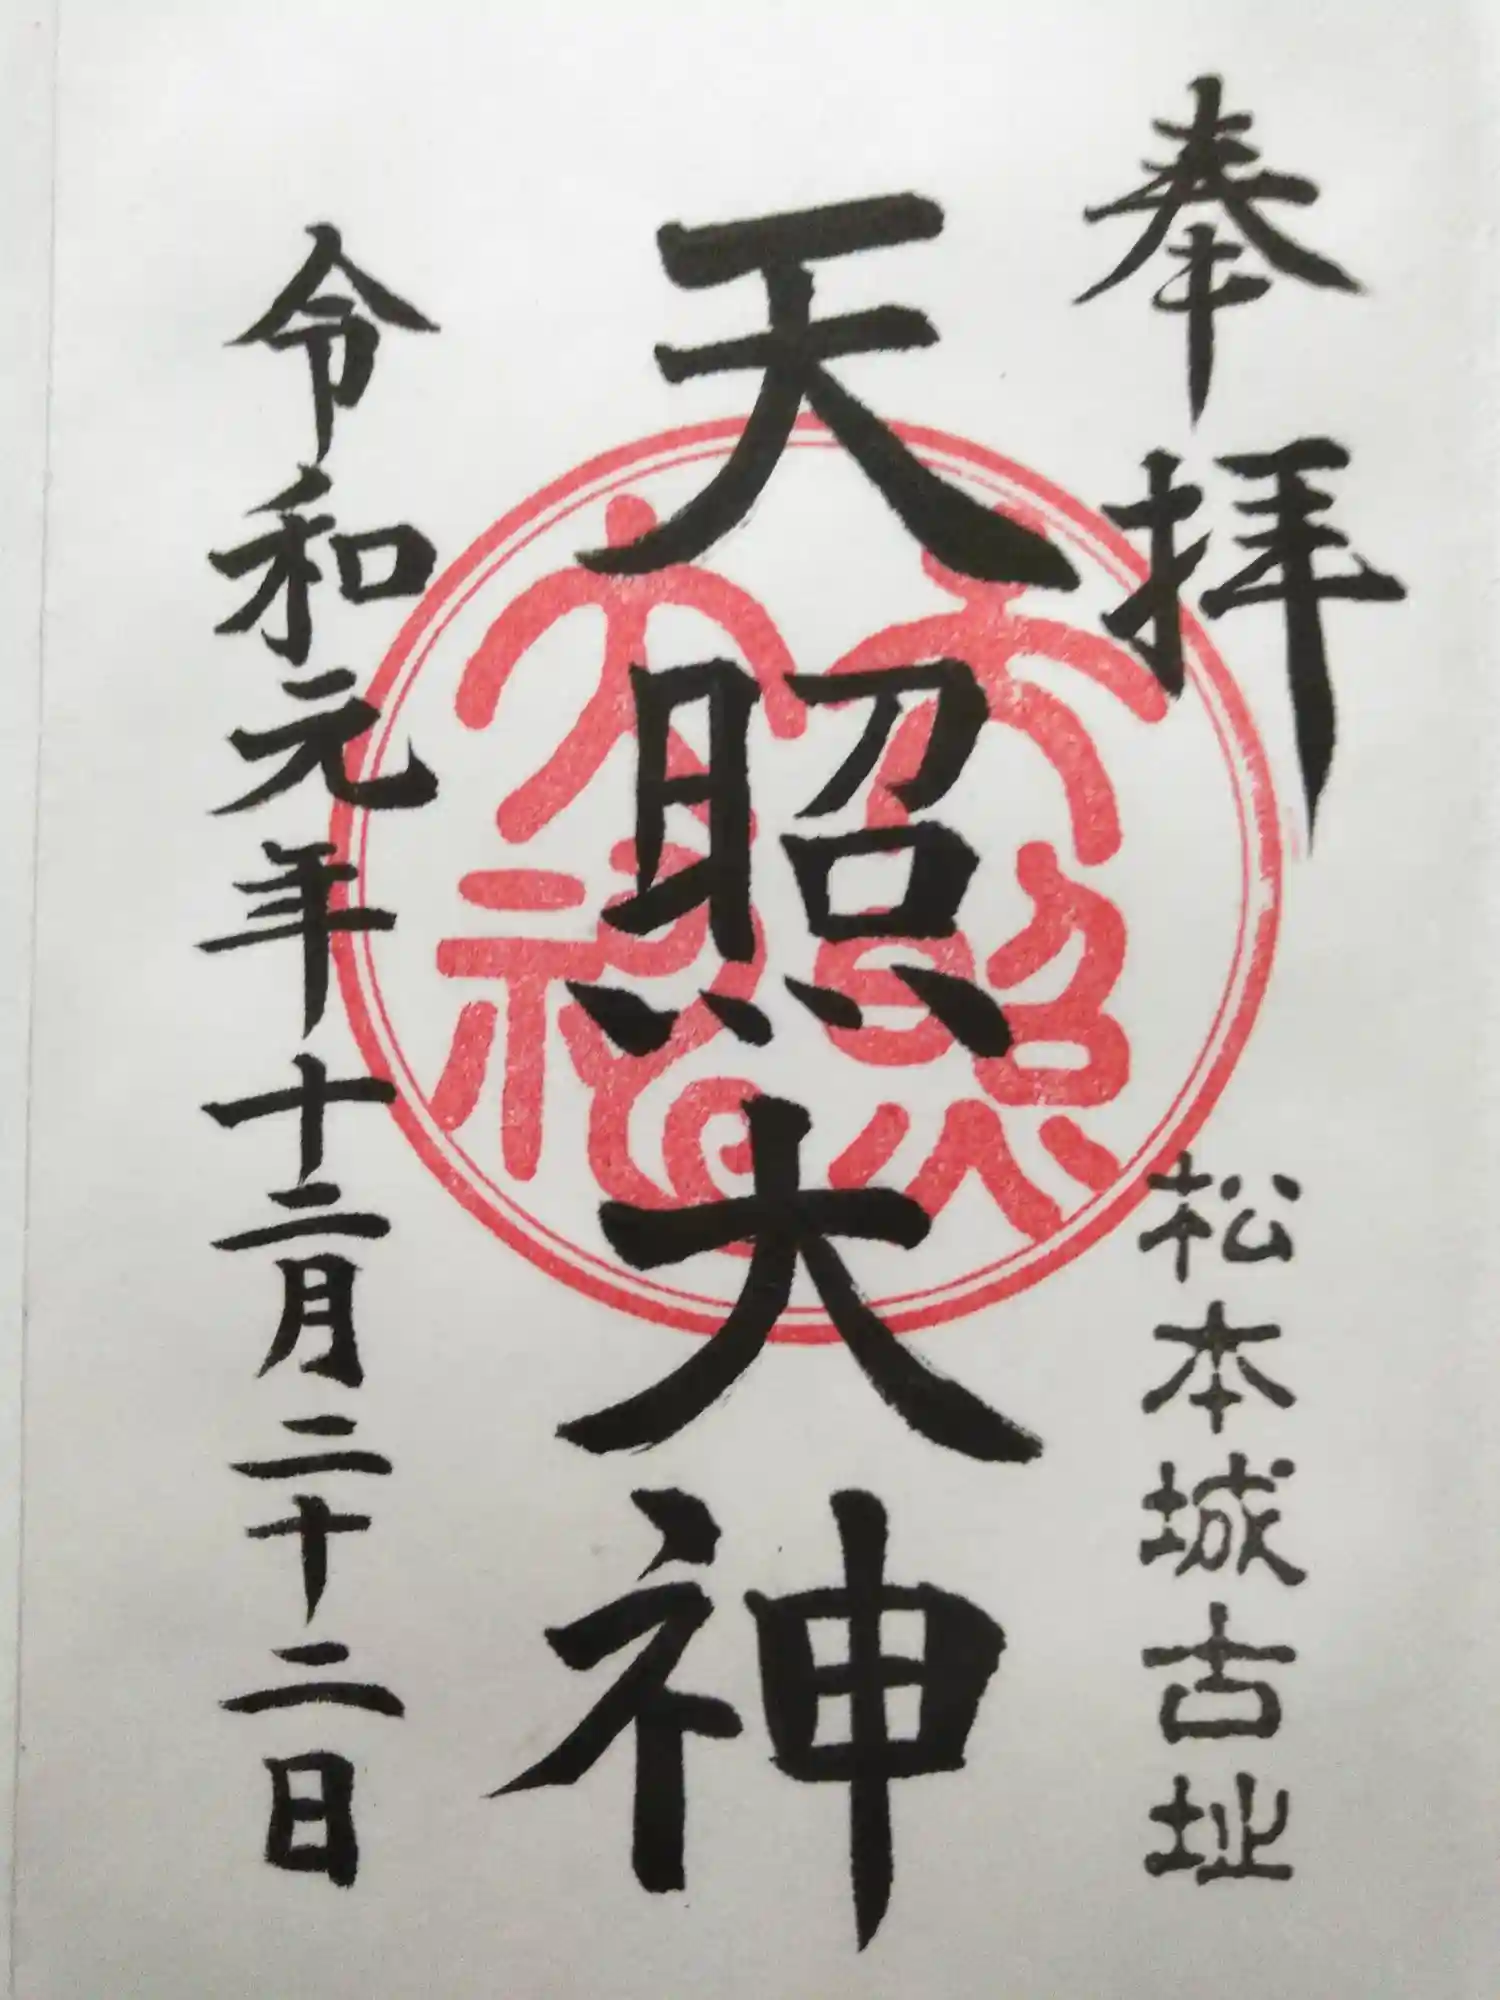 奉拝
松本城古址
天照大神
天照大神
令和元年十二月二十二日